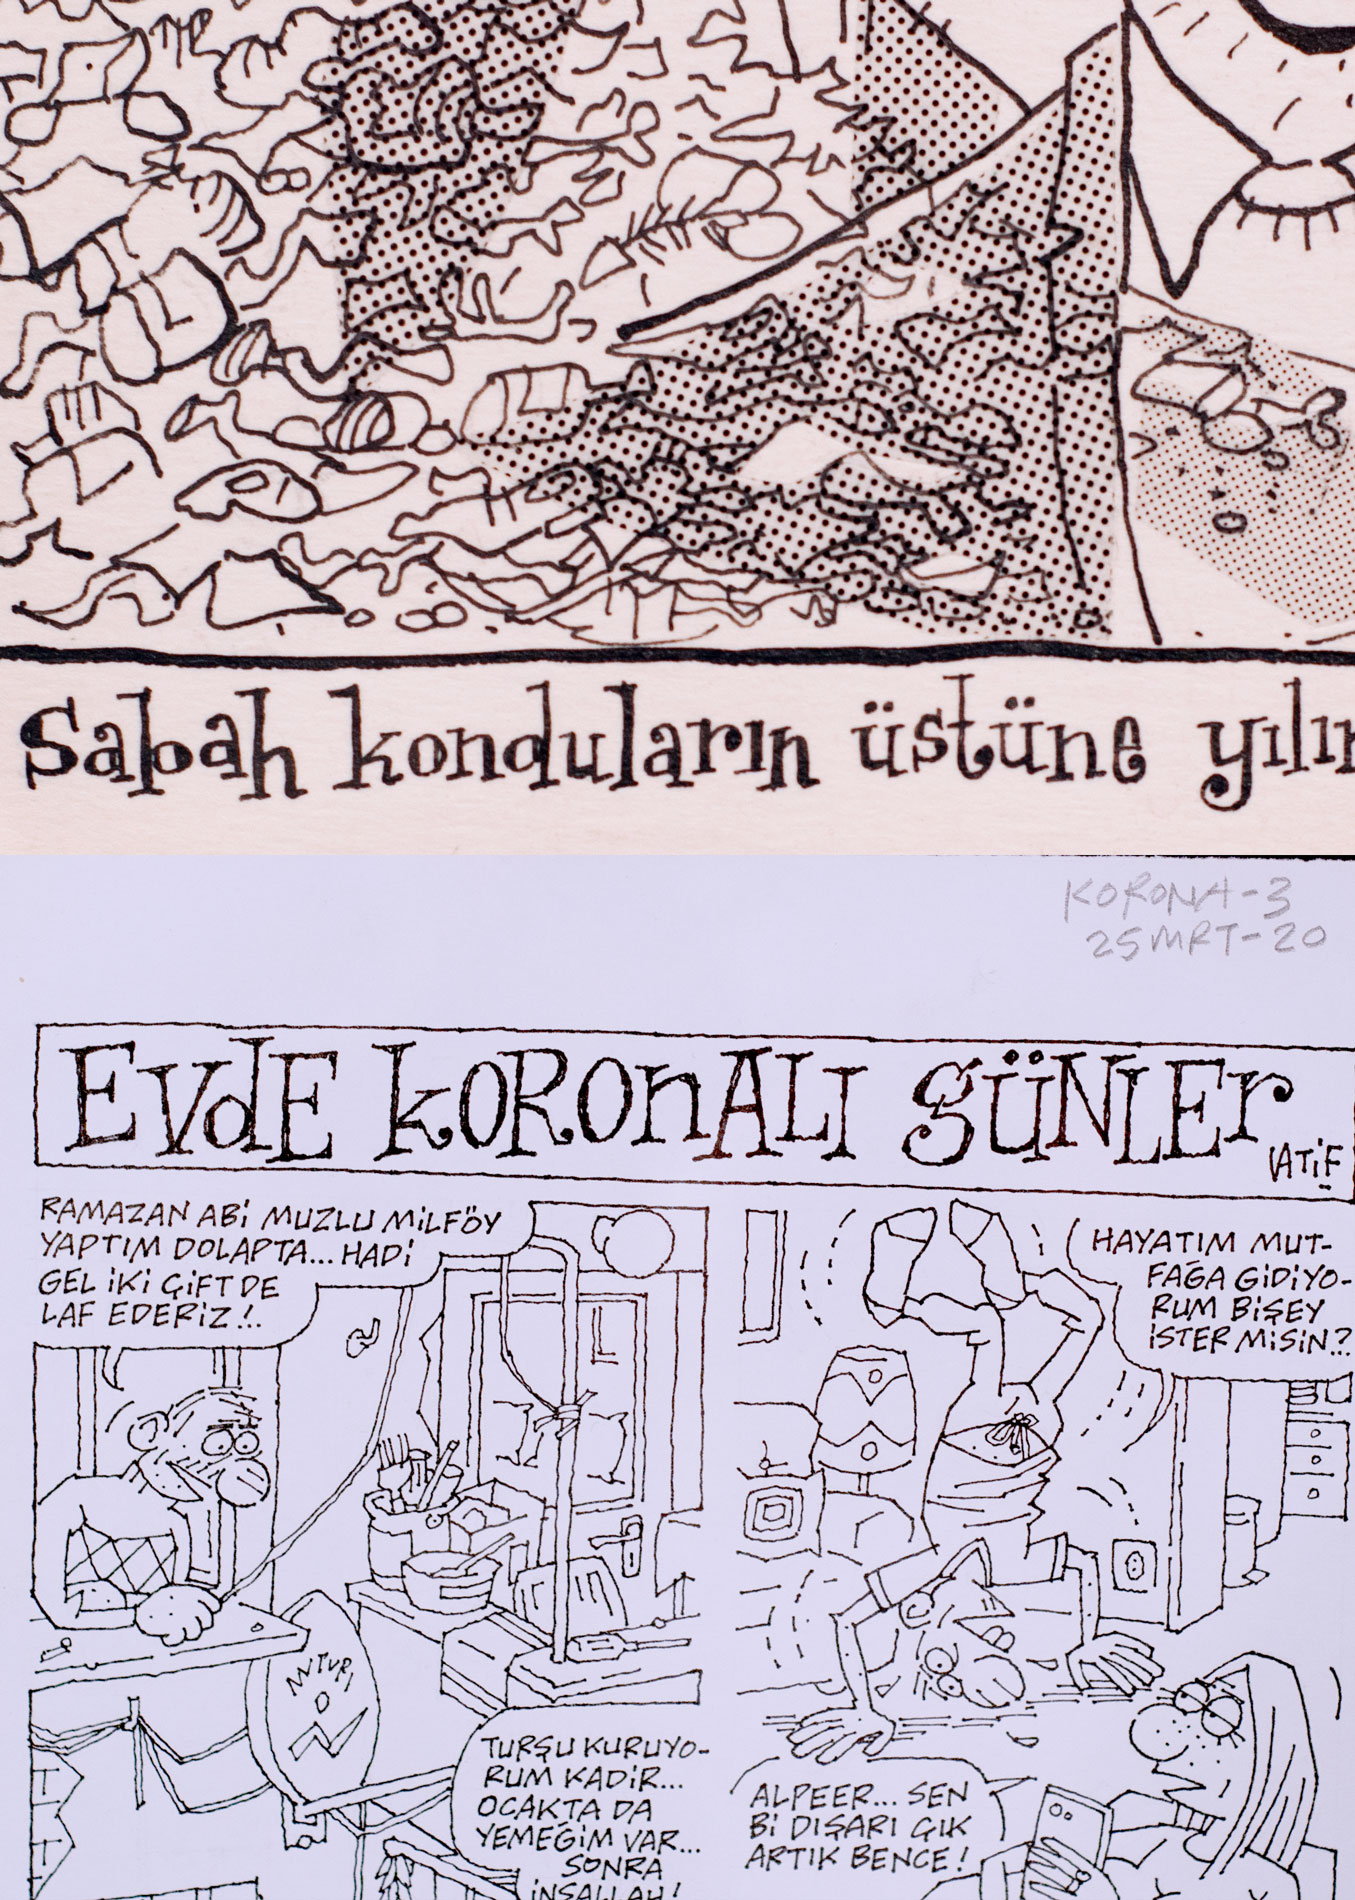 Sabah konduların üstüne yılır
KORONA-3
25 MRT-20
EVdE kORONALI GÜNLEr
LATİF
RAMAZAN ABİ MUZLU MİLFÖY
YAPTIM DOLAPTA... HADİ
GEL İKİ ÇİFT DE
LAF EDERİZ!..
HAYATIM MUT-
FAĞA GİDİYO-
RUM BİŞEY
İSTER MİSİN?
ANTVR
TURŞU KURUYO-
RUM KADİR...
OCAKTA DA
YEMEĞİM VAR...
SONRA
İNŞALLAH!
ALPEER... SEN
Bİ DIŞARI ÇIK
ARTIK BENCE!